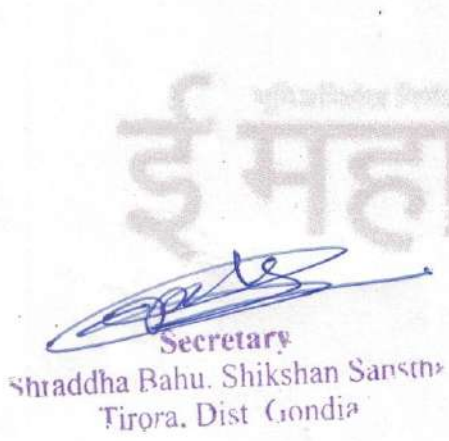 ई महा
Secretary
Shraddha Bahu. Shikshan Sanstha
Tirora. Dist Gondia